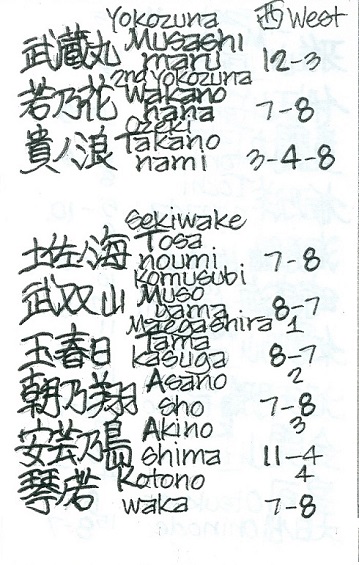 Yokozuna 西 West
武蔵丸 Musashi
maru 12-3
2nd Yokozuna
若乃花 Wakano
hana 7-8
Ozeki
貴ノ浪 Takano
nami 3-4-8
Sekiwake
土佐ノ海 Tosa
noumi 7-8
Komusubi
武双山 Muso
yama 8-7
Maegashira 1
玉春日 Tama
kasuga 8-7
2
朝乃翔 Asano
sho 7-8
3
安芸乃島 Akino
shima 11-4
4
琴若 Kotono
waka 7-8